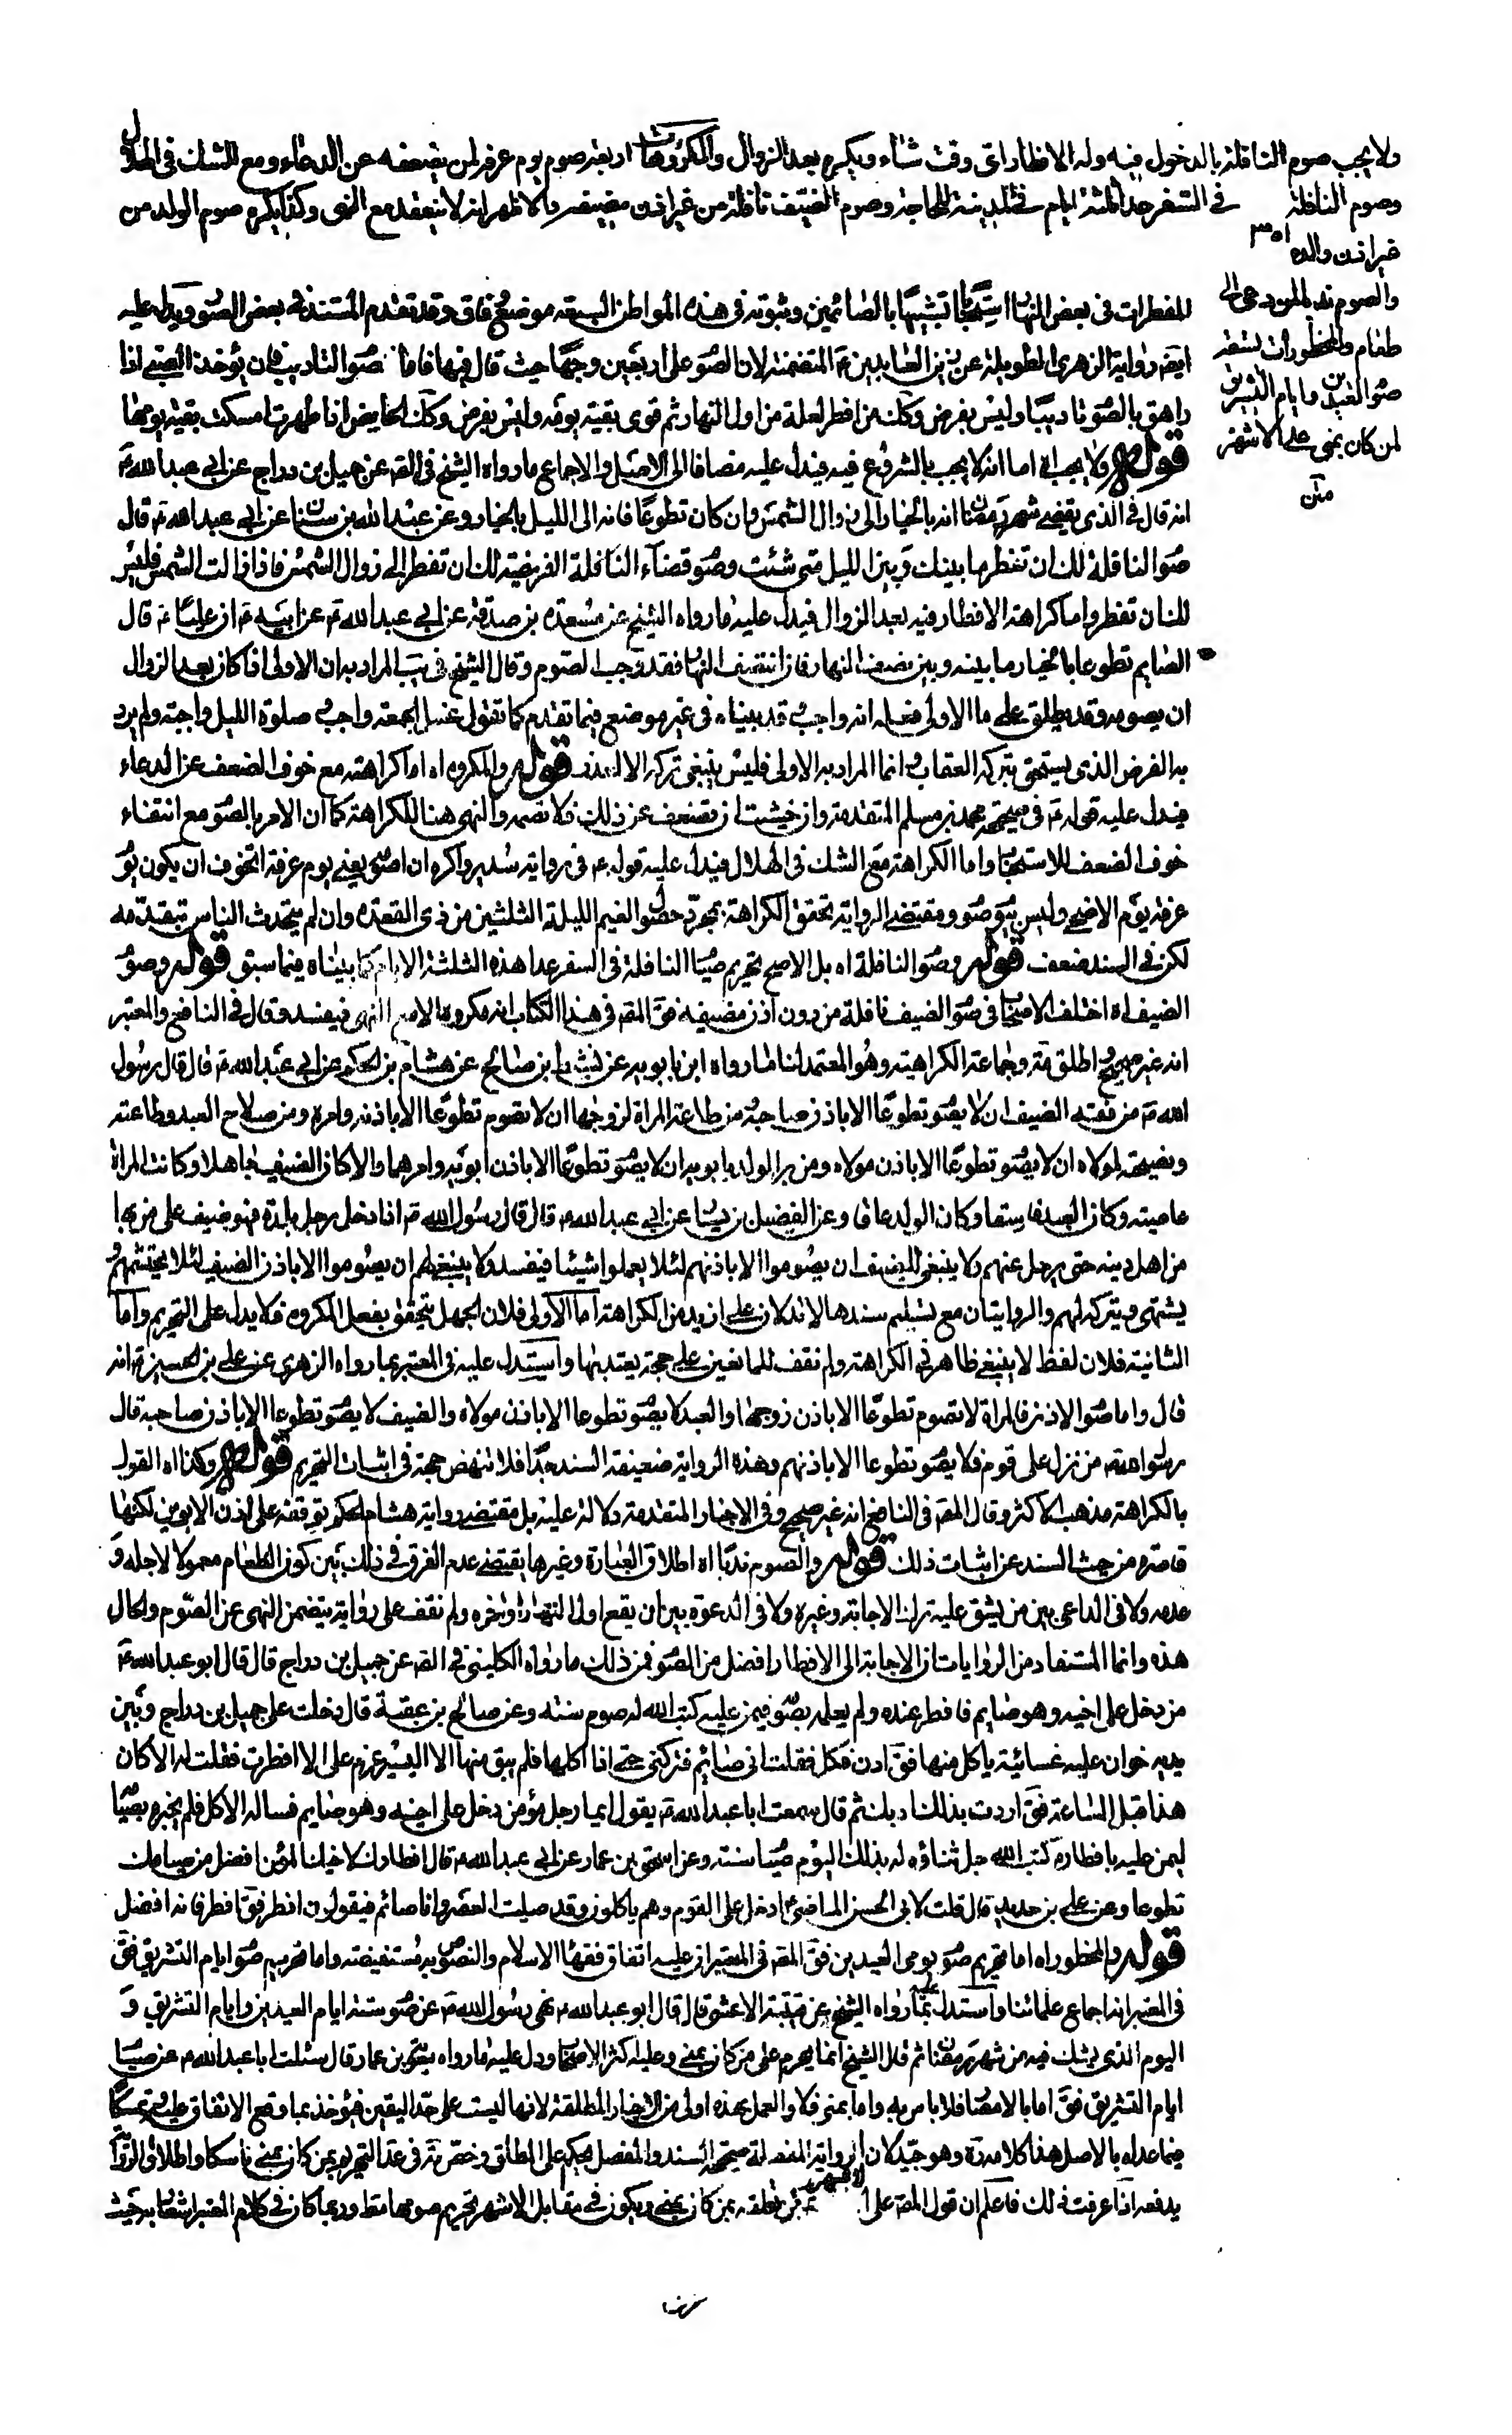 ولا يجب صوم النافلة بالدخول فيه وله الافطار اى وقت شاء ويكره بعد الزوال والمكروهات اربعة صوم يوم عرفة لمن يضعفه عن الدعاء ومع الشك فى الهلال
وصوم النافلة فى السفر عدا ثلثة ايام فى المدينة للحاجة وصوم الضيف نافلة من غير اذن مضيفه والاظهر انه لا ينعقد مع النهى وكذا يكره صوم الولد من
غير اذن والده
والصوم ندبا لمن دعى الى
طعام والمحظورات تسعة
صو العيدين وايام التشريق
لمن كان بمنى على الاشهر
متن
المفطرات فى بعض النها استحبابا تشبيها بالصائمين وثبوته فى هذه المواطن السبعة موضع وفاق وقد تقدم المستند فى بعض الصو ويدل عليه
ايضا رواية الزهرى الطويلة عن زين العابدين ع المتضمنة لان الصو على اربعين وجها حيث قال فيها فاما صو التاديب فان يؤخذ الصبى اذا
راهق بالصو تاديبا وليس بفرض وكك من افطر لعلة من اول النهار ثم قوى بقية يومه وليس بفرض وكك الحايض اذا طهرت امسكت بقية يومها
قوله ولا يجب اه اما انه لا يجب بالشروع فيه فيدل عليه مضافا الى الاصل والاجماع ما رواه الشيخ فى الصه عن جميل بن دراج عن ابى عبد الله ع
انه قال فى الذى يقضى شهر رمضان انه بالخيار الى زوال الشمس وان كان تطوعا فانه الى الليل بالخيار وعن عبد الله بن سنان عن ابى عبد الله ع قال
صو النافلة لك ان تفطر ما بينك وبين الليل متى شئت وصو قضاء الفريضة لك ان تفطر الى زوال الشمس فاذا زالت الشمس فليس
لك ان تفطر واما كراهة الافطار فيه بعد الزوال فيدل عليه ما رواه الشيخ عن مسعدة بن صدقة عن ابى عبد الله ع عن ابيه ع ان عليا ع قال
الصايم تطوعا بالخيار ما بينه وبين نصف النهار فاذا انتصف النها فقد وجب الصوم وقال الشيخ فى يب المراد به ان الاولى اذا كان بعد الزوال
ان يصومه وقد يطلق على ما الاولى فعله انه واجب قد بيناه فى غير موضع فيما تقدم كما تقول غسل الجمعة واجب صلوة الليل واجبة ولم يرد
به الفرض الذى يستحق بتركه العقاب وانما المراد به الاولى فليس ينبغى تركه الا لعذر قوله والمكروه اه اما كراهته مع خوف الضعف عن الدعاء
فيدل عليه قوله ع فى صحيحة محمد بن مسلم المتقدمة وان خشيت ان تضعف عن ذلك فلا تصمه والنهى هنا للكراهة كما ان الامر بالصو مع انتفاء
خوف الضعف للاستحبا واما الكراهة مع الشك فى الهلال فيدل عليه قوله ع فى رواية سدير واكره ان اصومه يعنى يوم عرفة اتخوف ان يكون يو
عرفة يوم الاضحى وليس بيو صو ومقتضى الرواية تحقق الكراهة بمجرد حصول الغيم الليلة الثلثين من ذى القعدة وان لم يتحدث الناس
لكن فى السند ضعف قوله وصو النافلة اه بل الاصح تحريم صيا النافلة فى السفر عدا هذه الثلثة الايام كما بيناه فيما سبق قوله وصو
الضيف اه اختلف الاصحا فى صو الضيف نافلة من دون اذن مضيفه فق المصه فى هذا الكتاب انه مكروه الا مع النهى فيفسد وقال فى النافع والمعتبر
انه غير صحيح واطلق مة وجماعة الكراهية وهو المعتمد لنا ما رواه ابن بابويه عن نشيط بن صالح عن هشام بن الحكم عن ابى عبد الله ع قال قال رسول
الله ص من فقه الضيف ان لا يصو تطوعا الا باذن صاحبه ومن طاعة المراة لزوجها ان لا تصوم تطوعا الا باذنه وامره ومن صلاح العبد وطاعته
ونصيحته لمولاه ان لا يصو تطوعا الا باذن مولاه ومن بر الولد بابويه ان لا يصو تطوعا الا باذن ابويه وامرهما والا كان الضيف جاهلا وكانت المراة
عاصية وكان العبد فاسقا وكان الولد عاقا وعن الفضيل بن يسا عن ابى عبد الله ع قال قال رسول الله ص اذا دخل رجل بلدة فهو ضيف على من بها
من اهل دينه حتى يرحل عنهم ولا ينبغى للضيف ان يصوموا الا باذنهم لئلا يعملوا شيئا فيفسد ولا ينبغى لهم ان يصوموا الا باذن الضيف لئلا يحتشمهم
يشتهى ويتركه لهم والروايتان مع تسليم سندهما لا تدلان على ازيد من الكراهة اما الاولى فلان الجهل يتحقق بفعل المكروه فلا يدل على التحريم واما
الثانية فلان لفظ لا ينبغى ظاهر فى الكراهة ولم نقف للمانعين على حجة يعتد بها واستدل عليه فى المعتبر بما رواه الزهرى عن على بن الحسين ع انه
قال واما صو الاذن فالمراة لا تصوم تطوعا الا باذن زوجها والعبد لا يصو تطوعا الا باذن مولاه والضيف لا يصو تطوعا الا باذن صاحبه قال
رسول الله ص من نزل على قوم فلا يصو تطوعا الا باذنهم وهذه الرواية ضعيفة السند جدا فلا تنهض حجة فى اثبات التحريم قوله وكذا اه القول
بالكراهة مذهب الاكثر وقال المصه فى النافع انه غير صحيح وفى الاخبار المتقدمة دلالة عليه بل مقتضى رواية هشام بن الحكم توقفه على اذن الابوين لكنها
قاصرة من حيث السند عن اثبات ذلك قوله والصوم ندبا اه اطلاق العبارة وغيرها يقتضى عدم الفرق فى ذلك بين كون الطعام معمولا لاجله و
عدمه ولا فى الداعى بين من يشق عليه ترك الاجابة وغيره ولا فى الدعوة بين ان يقع اول النهار او اخره ولم نقف على رواية يتضمن النهى عن الصوم والحال
هذه وانما المستفاد من الروايات ان الاجابة الى الافطار افضل من الصو فمن ذلك ما رواه الكلينى فى الصه عن جميل بن دراج قال قال ابو عبد الله ع
من دخل على اخيه وهو صايم فافطر عنده ولم يعلمه بصو فيمن عليه كتب الله له صوم سنة وعن صالح بن عقبة قال دخلت على جميل بن دراج وبين
يديه خوان عليه غسانية ياكل منها فق ادن فكل فقلت انى صائم فتركنى حتى اذا اكلها فلم يبق منها الا اليسير عزم على الا افطرت فقلت له الا كان
هذا قبل الساعة فق اردت بذلك ادبك ثم قال سمعت ابا عبد الله ع يقول ايما رجل مؤمن دخل على اخيه وهو صايم فساله الاكل فلم يخبره بصيا
ليمن عليه بافطاره كتب الله جل ثناؤه له بذلك اليوم صيا سنة وعن اسحق بن عمار عن ابى عبد الله ع قال افطارك لاخيك المؤمن افضل من صيامك
تطوعا وعن على بن حديد قال قلت لابى الحسن الماضى ع ادخل على القوم وهم ياكلون وقد صليت العصر وانا صائم فيقولون افطر فق افطر فانه افضل
قوله والمحظور اه اما تحريم صو يومى العيدين فق المصه فى المعتبر ان عليه اتفاق فقهاء الاسلام والنصوص به مستفيضة واما تحريم صو ايام التشريق فق
فى المعتبر انه اجماع علمائنا واستدل عليه بما رواه الشيخ عن قتيبة الاعشى قال قال ابو عبد الله ع نهى رسول الله ص عن صو ستة ايام العيدين وايام التشريق و
اليوم الذى يشك فيه من شهر رمضان ثم قال الشيخ انما يحرم على من كان بمنى وعليه اكثر الاصحا ودل عليه ما رواه معوية بن عمار قال سئلت ابا عبد الله ع عن صيا
ايام التشريق فق اما بالامصا فلا باس به واما بمنى فلا والعمل بهذه اولى من الاخبار المطلقة لانها ليست على حد اليقين فيؤخذ بما وقع الاتفاق عليه وتمسكا
فيما عداه بالاصل هذا كلامه ره وهو جيد لان الرواية المفصلة صحيحة السند والمفصل يحكم على المطلق وخص مة فى عد التحريم بمن كان بمنى ناسكا واطلاق الروا
يدفعه اذا عرفت ذلك فاعلم ان قول المصه على الاشهر تعلقه بمن كان بمنى ويكون فى مقابل الاشهر تحريم صومها مط وربما كان فى كلام المعتبر اشعا به حيث